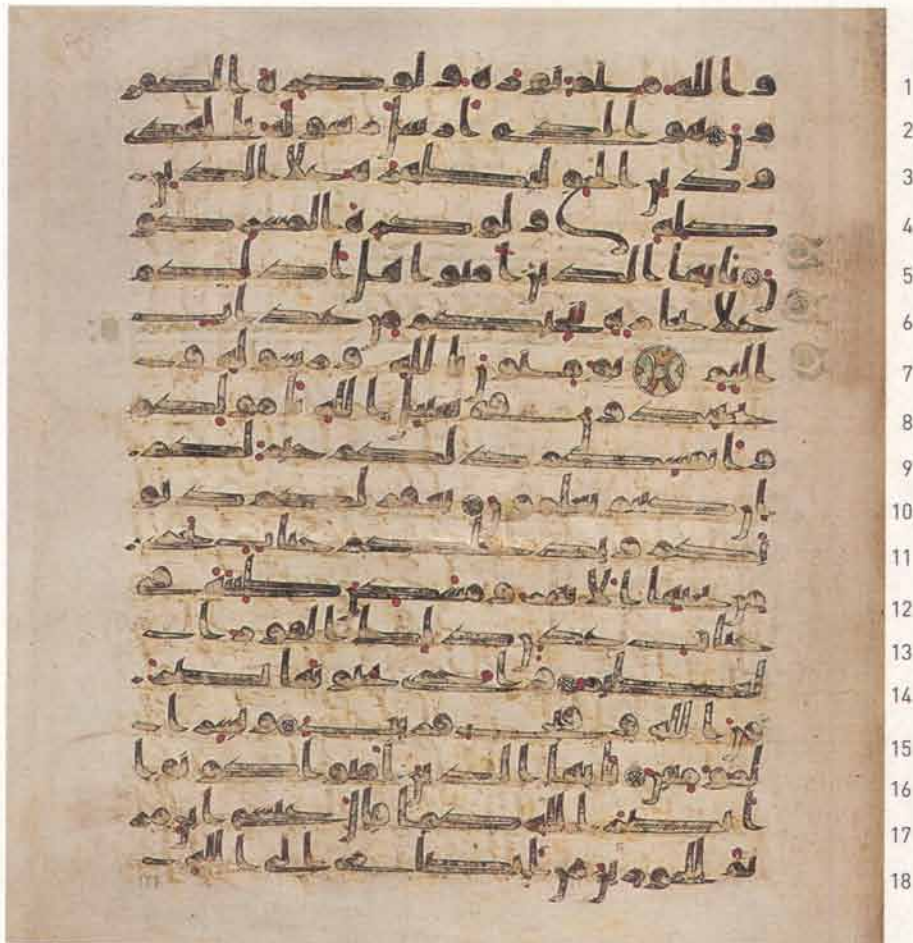 و الله متم نوره و لو كره الكفر 1
و ن هو الذى ارسل رسوله بالهدى 2
و دين الحق ليظهره على الدين 3
كله و لو كره المشركو 4
ن يايها الذين امنوا هل ادلكم 5
على تجرة تنجيكم من عذاب 6
اليم تومنون بالله و رسوله و تج 7
هدون فى سبيل الله بامولكم 8
و انفسكم ذلكم خير لكم 9
ان كنتم تعلمون يغفر لكم ذنو 10
بكم و يدخلكم جنت تجرى 11
من تحتها الانهر و مسكن طيبة فى 12
جنت عدن ذلك الفوز ا 13
لعظيم و اخرى تحبونها نصر 14
من الله و فتح قريب و بشر ا 15
لمومنين يايها الذين امنوا كونوا 16
انصار الله كما قال عيسى ابن مر 17
يم للحوارين من انصارى الى الله 18